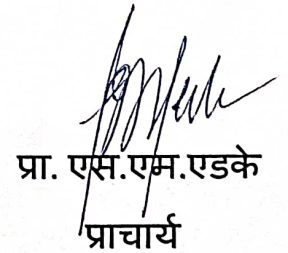 प्रा. एस.एम.एडके
प्राचार्य